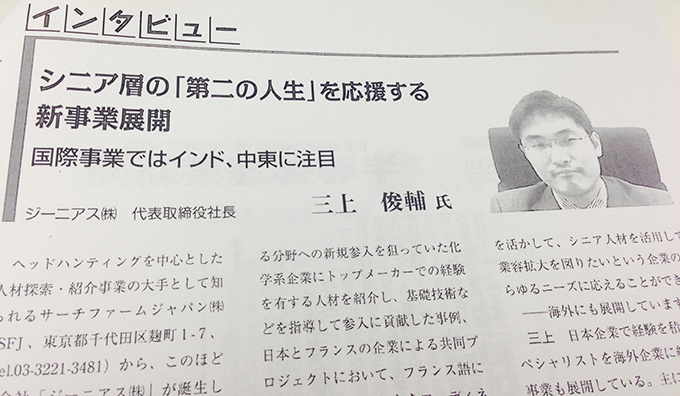 インタビュー
シニア層の「第二の人生」を応援する
新事業展開
国際事業ではインド、中東に注目
ジーニアス㈱　代表取締役社長　三上　俊輔 氏
ヘッドハンティングを中心とした
人材探索・紹介事業の大手として知
られるサーチファームジャパン㈱
SFJ、東京都千代田区麹町1-7、
tel.03-3221-3481）から、このほど
会社「ジーニアス㈱」が誕生し
る分野への新規参入を狙っていた化
学系企業にトップメーカーでの経験
を有する人材を紹介し、基礎技術な
どを指導して参入に貢献した事例、
日本とフランスの企業による共同プ
ロジェクトにおいて、フランス語に
を活かして、シニア人材を活用して
業容拡大を図りたいという企業の
らゆるニーズに応えることができ
――海外にも展開しています
三上　日本企業で経験を
ペシャリストを海外企業に
事業も展開している。主に